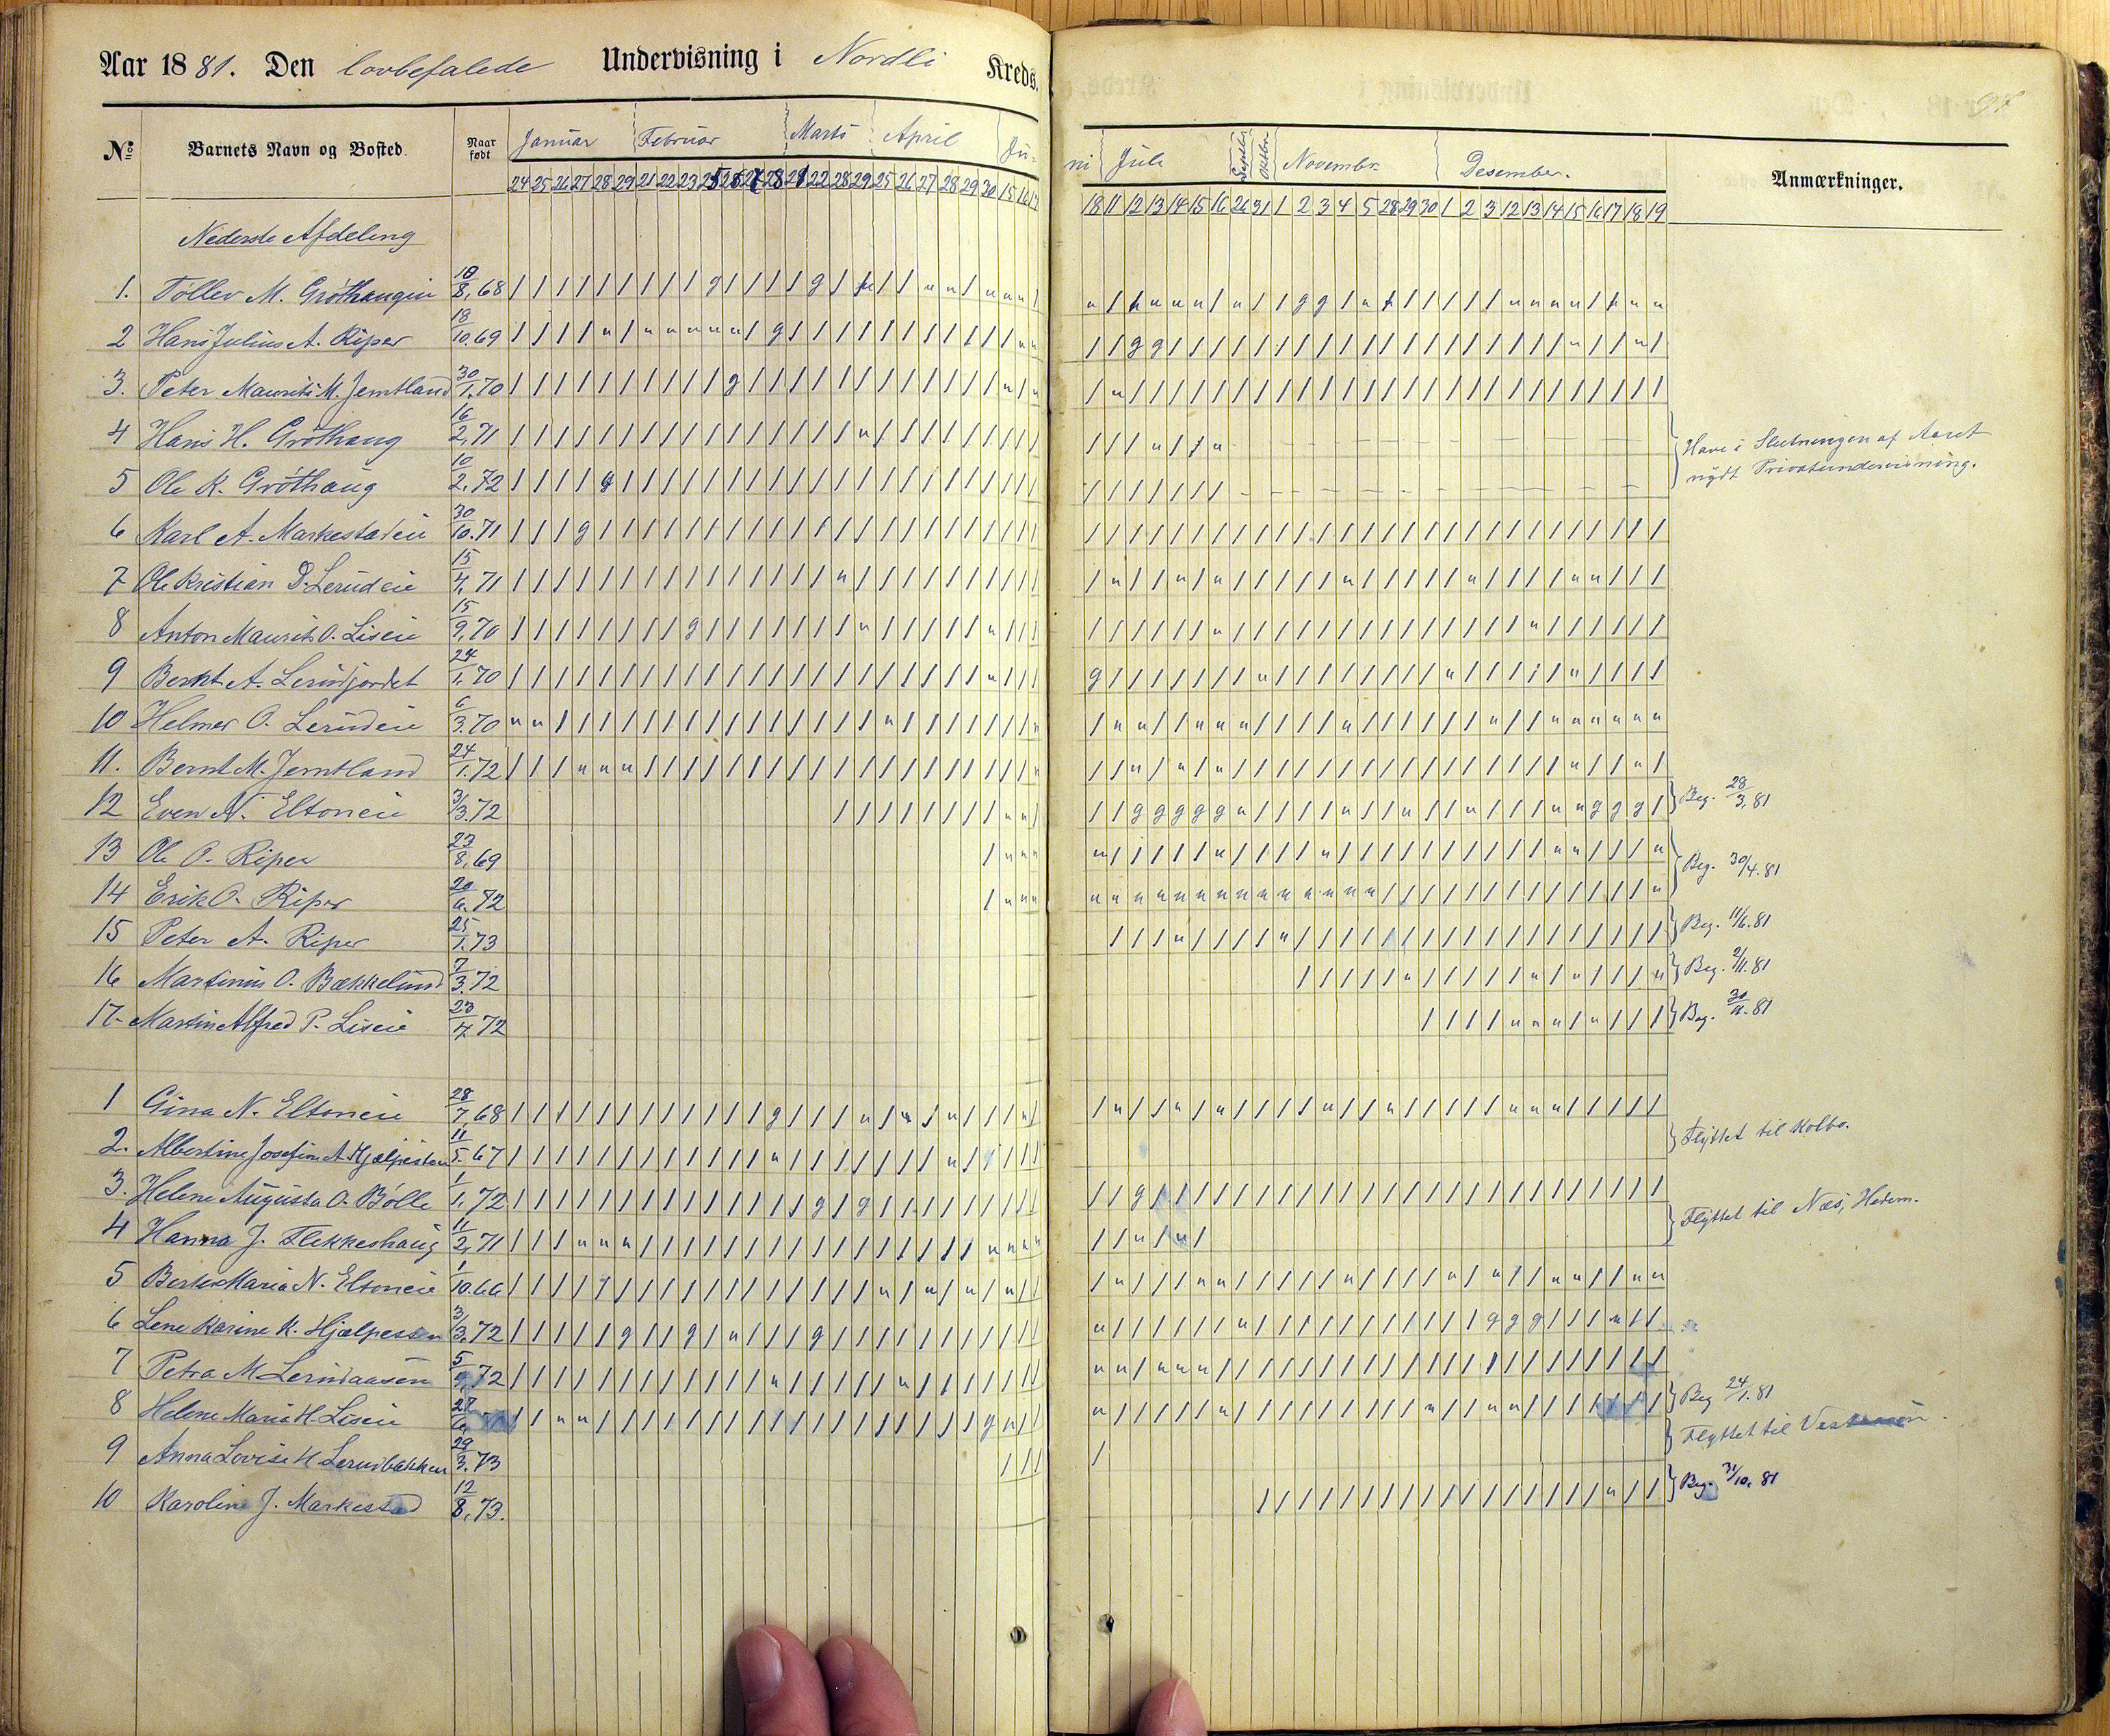 Aar 1881. Den lovbefalede Undervisning i Nordli Kreds.
No Barnets Navn og Bosted. Naar født Januar Februar Marts April Ju-
24 25 26 27 28 29 21 22 23 25 26 28 21 22 28 29 25 26 27 28 29 30 15 16 17
ni Juli Septbr Oktbr Novembr. Desember. Anmærkninger.
18 11 12 13 14 15 16 26 31 1 2 3 4 5 28 29 30 1 2 3 12 13 14 15 16 17 18 19
Nederste Afdeling
1. Tollev M. Gróthaugin 10/8,68
2 Hans Julius A. Riper 18/10.69
3. Peter Maurits M. Jemtland 30/1.70
4 Hans H. Gróthaug 16/2,71
5 Ole K. Gróthaug 10/2,72
6 Karl A. Markestadeie 30/10.71
7 Ole Kristian D. Lerudeie 15/4,71
8 Anton Maurits O. Liseie 15/9,70
9 Bernt A. Lerudjordet 24/1.70
10 Helmer O. Lerudeie 6/3.70
11. Bernt M. Jemtland 24/1.72
12 Even N. Eltoneie 3/3.72
13 Ole O. Riper 23/8,69
14 Erik O. Riper 20/6.72
15 Peter A. Riper 25/1.73
16 Martinus O. Bækkelund 7/3.72
17. Martin Alfred P. Liseie 23/4 72
Have i Slutningen af Aaret
nydt Privatundervisning.
Beg. 28/3,81
Beg. 30/4.81
Beg. 11/6.81
Beg. 2/11.81
Beg. 30/11.81
1 Gina N. Eltoneie 28/7,68
2. Albertine Josefine A. Hjælpesten 11/5.67
3. Helene Augusta O. Bólle 1/1,72
4 Hanna J. Flekkeshaug 11/2,71
5 Berte Maria N. Eltoneie 1/10.66
6 Lene Karine K. Hjælpesten 3/3.72
7 Petra M Lerudaasen 5/9,72
8 Helene Maria H. Liseie
9 Anna Lovise H Lerudbakken 29/3.73
10 Karoline J. Markestad 12/8,73.
Flyttet til Kolbo.
Flyttet til Næs, Hedem.
Beg 24/1.81
Flyttet til
Beg. 31/10.81